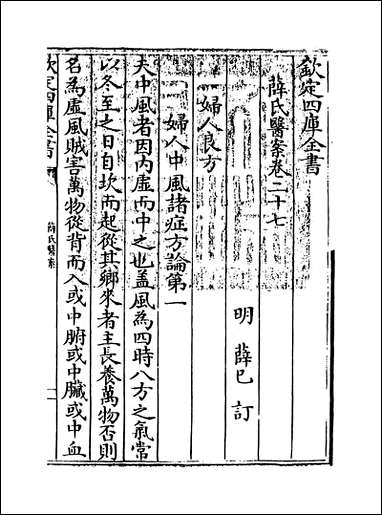 欽定四庫全書
薛氏醫案卷二十七
明 薛己 訂
婦人良方
婦人中風諸症方論第一
夫中風者因內虛而中之也盖風為四時八方之氣常
以冬至之日自坎而起從其鄉來者主長養萬物否則
名為虛風賊害萬物從背而入或中腑或中臟或中血
欽定四庫全書
薛氏醫案